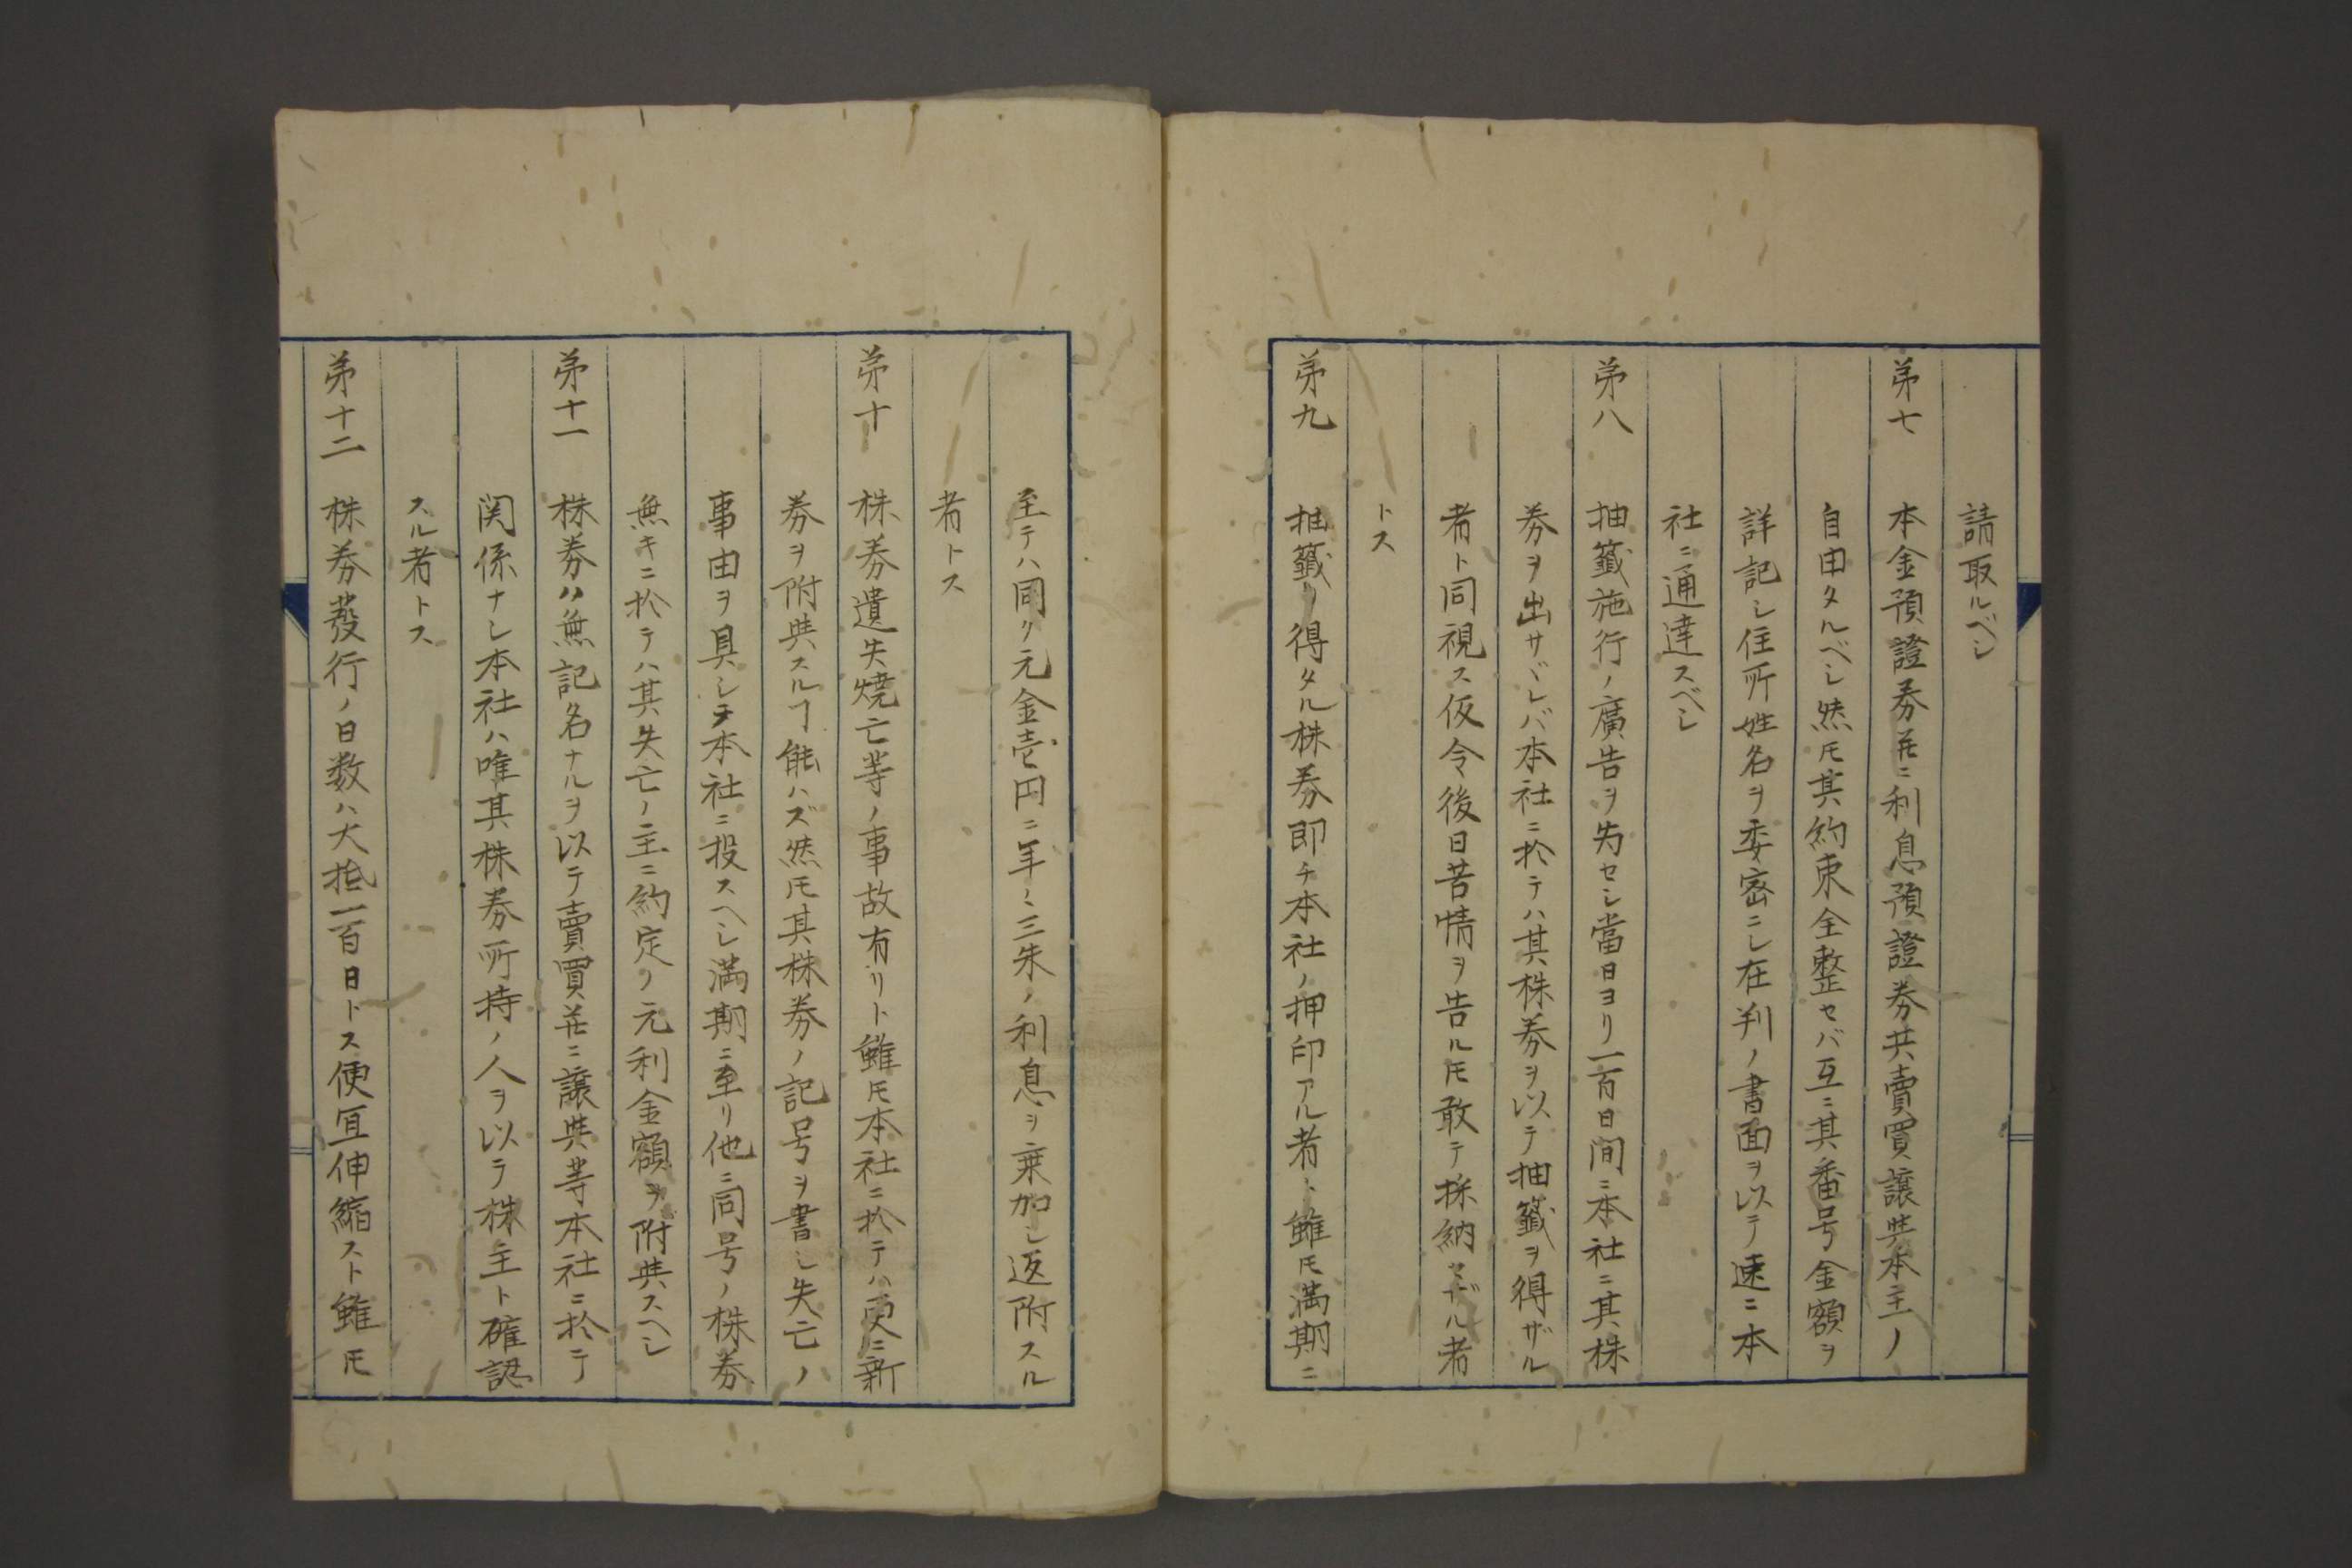 請取ルベシ
第七 本金預證券并ニ利息預證券共賣買譲與本主ノ
自由タルベシ然ㇳモ其約束全整セバ互ニ其番号金額ヲ
詳記シ住所姓名ヲ委密ニシ在判ノ書面ヲ以テ速ニ本
社ニ通達スベシ
第八 抽籤施行ノ廣告ヲ为セシ當日ヨリ一百日間ニ本社ニ其株
券ヲ出サヾレバ本社ニ於テハ其株券ヲ以テ抽籤ヲ得ザル
者ト同視ス仮令後日苦情ヲ告ルㇳモ敢テ採納セザル者
トス
第九 抽籤リ得タル株券即チ本社ノ押印アル者ト雖ㇳモ満期ニ
至テハ同ク元金壱円ニ年々三朱ノ利息ヲ乗加シ返附スル
者トス
第十 株券遺失焼亡等ノ事故有リト雖ㇳモ本社ニ於テハ更ニ新
券ヲ附與スルヿ能ハズ然ㇳモ其株券ノ記号ヲ書シ失亡ノ
事由ヲ具シテ本社ニ投スヘシ満期ニ至リ他ニ同号ノ株券
無キニ於テハ其失亡ノ主ニ約定ノ元利金額ヲ附與スヘシ
第十一 株券ハ無記名ナルヲ以テ賣買并ニ譲與等本社ニ於テ
関係ナシ本社ハ唯其株券所持ノ人ヲ以テ株主ト確認
スル者トス
第十二 株券發行ノ日数ハ大抵一百日トス便宜伸縮スト雖ㇳモ